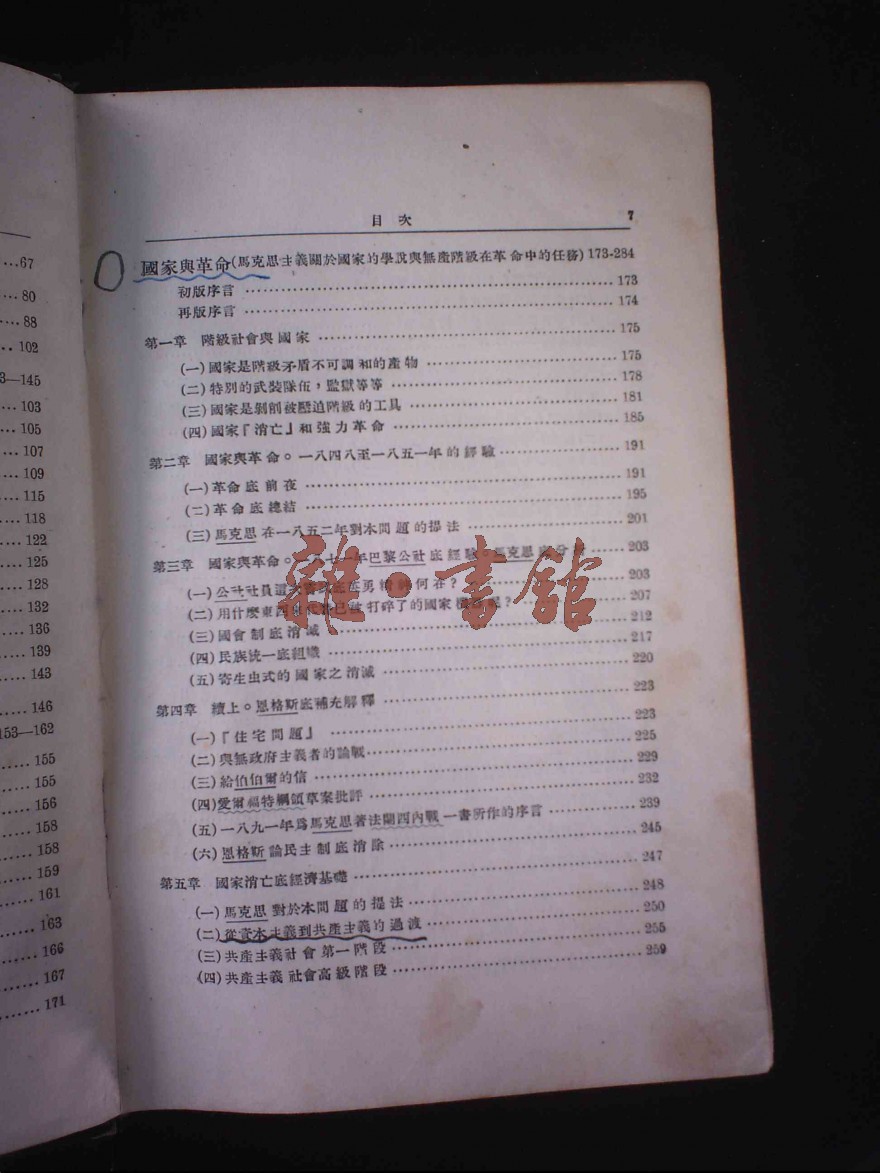 …67
…80
…88
…102
3—145
…103
…105
…107
…109
…115
…118
…122
…125
…128
…132
…136
…139
…143
…146
153—162
…155
…155
…156
…158
…158
…159
…161
…163
…166
…167
…171
目次 7
國家與革命(馬克思主義關於國家的學說與無產階級在革命中的任務) 173-284
初版序言 …… 173
再版序言 …… 174
第一章 階級社會與國家 …… 175
(一)國家是階級矛盾不可調和的產物 …… 175
(二)特別的武裝隊伍，監獄等等 …… 178
(三)國家是剝削被壓迫階級的工具 …… 181
(四)國家『消亡』和強力革命 …… 185
第二章 國家與革命。一八四八至一八五一年的經驗 …… 191
(一)革命底前夜 …… 191
(二)革命底總結 …… 195
(三)馬克思在一八五二年對本問題的提法 …… 201
第三章 國家與革命。一八七一年巴黎公社底經驗。馬克思底分析 …… 203
(一)公社社員這次嘗試底英勇精神何在？ …… 203
(二)用什麼東西來代替已被打碎了的國家機器呢？ …… 207
(三)國會制底消滅 …… 212
(四)民族統一底組織 …… 217
(五)寄生虫式的國家之消滅 …… 220
第四章 續上。恩格斯底補充解釋 …… 223
(一)『住宅問題』 …… 223
(二)與無政府主義者的論戰 …… 225
(三)給伯伯爾的信 …… 229
(四)愛爾福特綱領草案批評 …… 232
(五)一八九一年爲馬克思著法蘭西內戰一書所作的序言 …… 239
(六)恩格斯論民主制底消除 …… 245
第五章 國家消亡底經濟基礎 …… 247
(一)馬克思對於本問題的提法 …… 248
(二)從資本主義到共產主義的過渡 …… 250
(三)共產主義社會第一階段 …… 255
(四)共產主義社會高級階段 …… 259
雜·書館